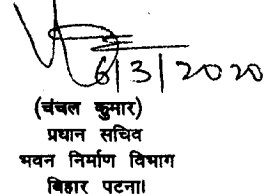 6/3/2020
(चंचल कुमार)
प्रधान सचिव
भवन निर्माण विभाग
बिहार पटना।